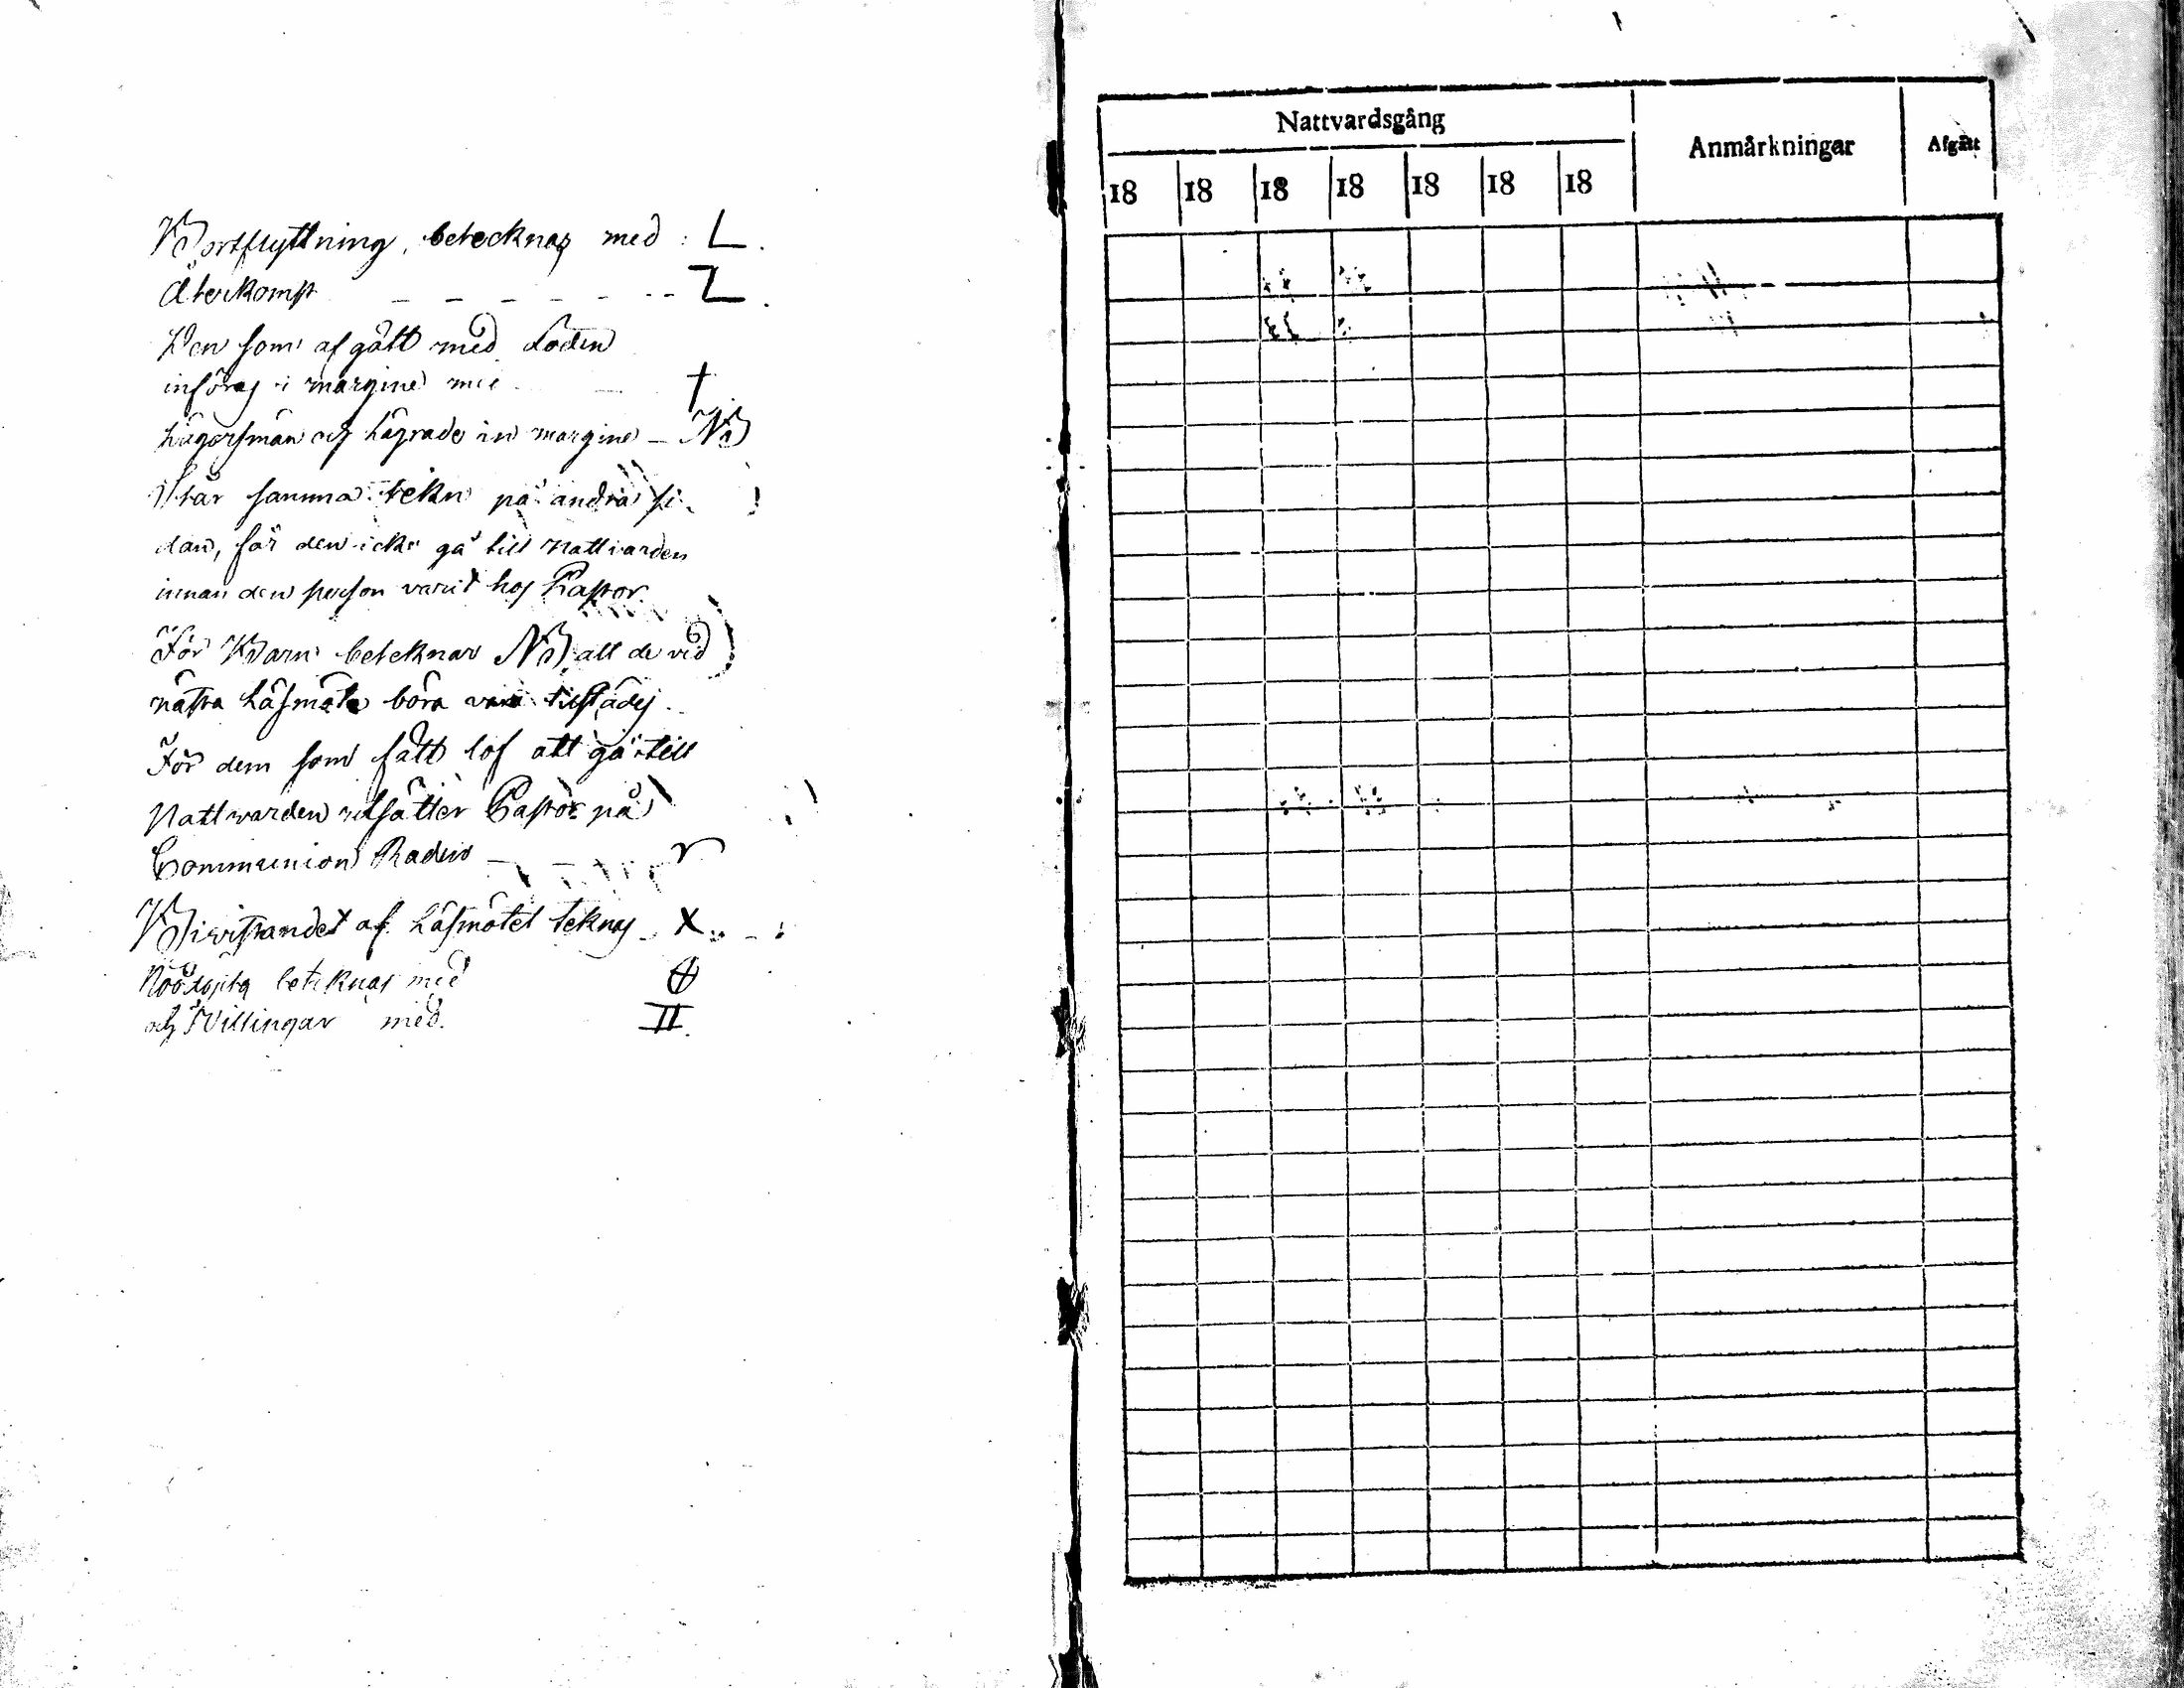 Bortflyttning, betecknas med: L.
Återkomst - - - - - - - Z.
Den som afgått med döden
införas i margine med †
Lägersmän och Lägrade in margine - NB
Står samma tekn på andra si-
dan, får den icke gå till Nattvarden
innan den person varit hos Pastor.
För Barn beteknar NB, att de vid
nästa Läsmöte böra vara tillstädes.
För dem som fått lof att gå till
Nattwarden utsätter Pastor på
Communion Raden - - r
Bivistandet af Läsmötet teknas - X
Nöddöpta beteknas med ⊕
och Tvillingar med. II.
Nattvardsgång
Anmårkningar
Afgått
18 18 18 18 18 18 18